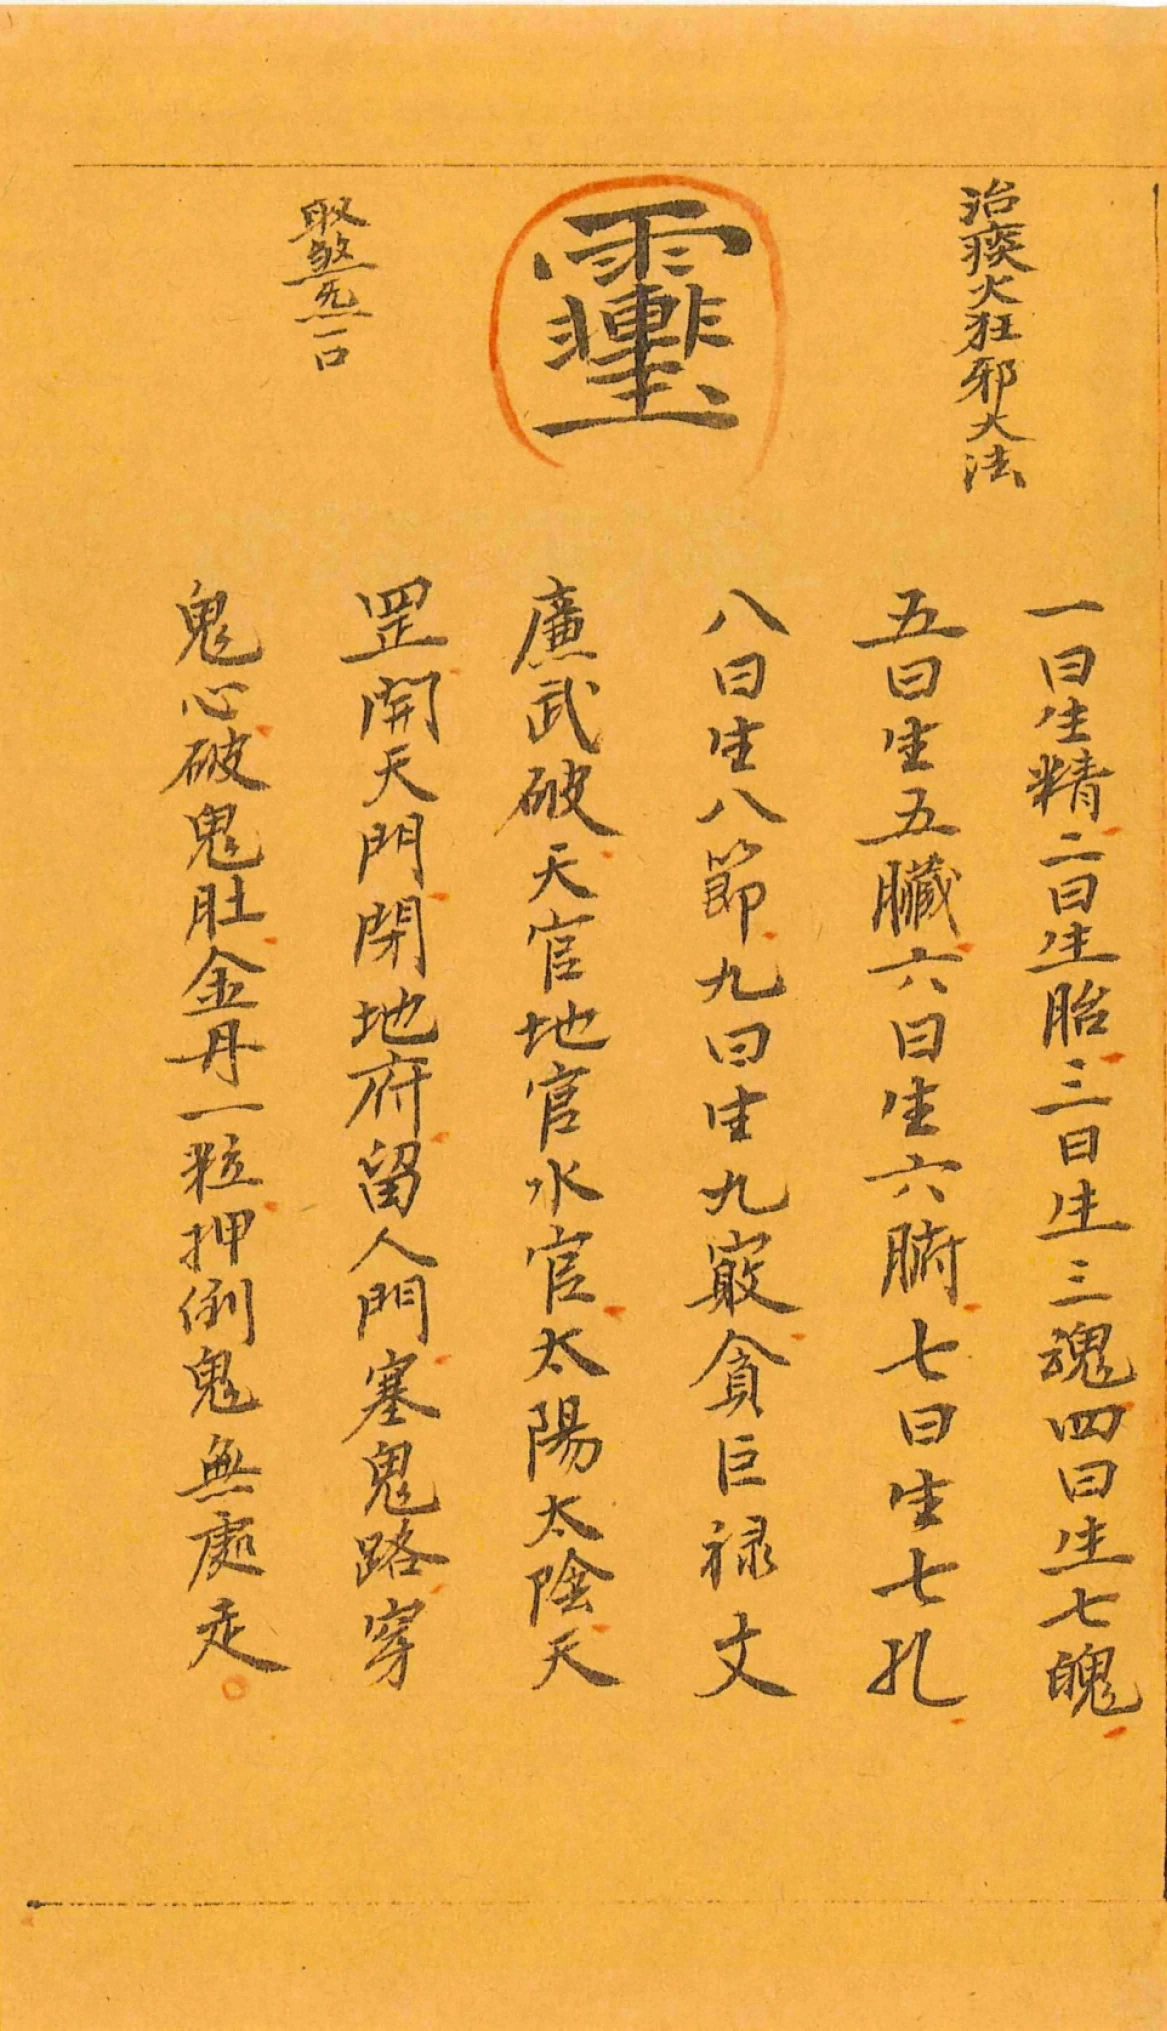 治痰火狂邪大法
一曰生精二曰生胎三曰生三魂四曰生七魄
五曰生五臟六曰生六腑七曰生七孔
八曰生八節九曰生九竅貪巨禄文
廉武破天官地官水官太陽太陰天
罡開天門閉地府留人門塞鬼路穿
鬼心破鬼肚金丹一粒押倒鬼無處走